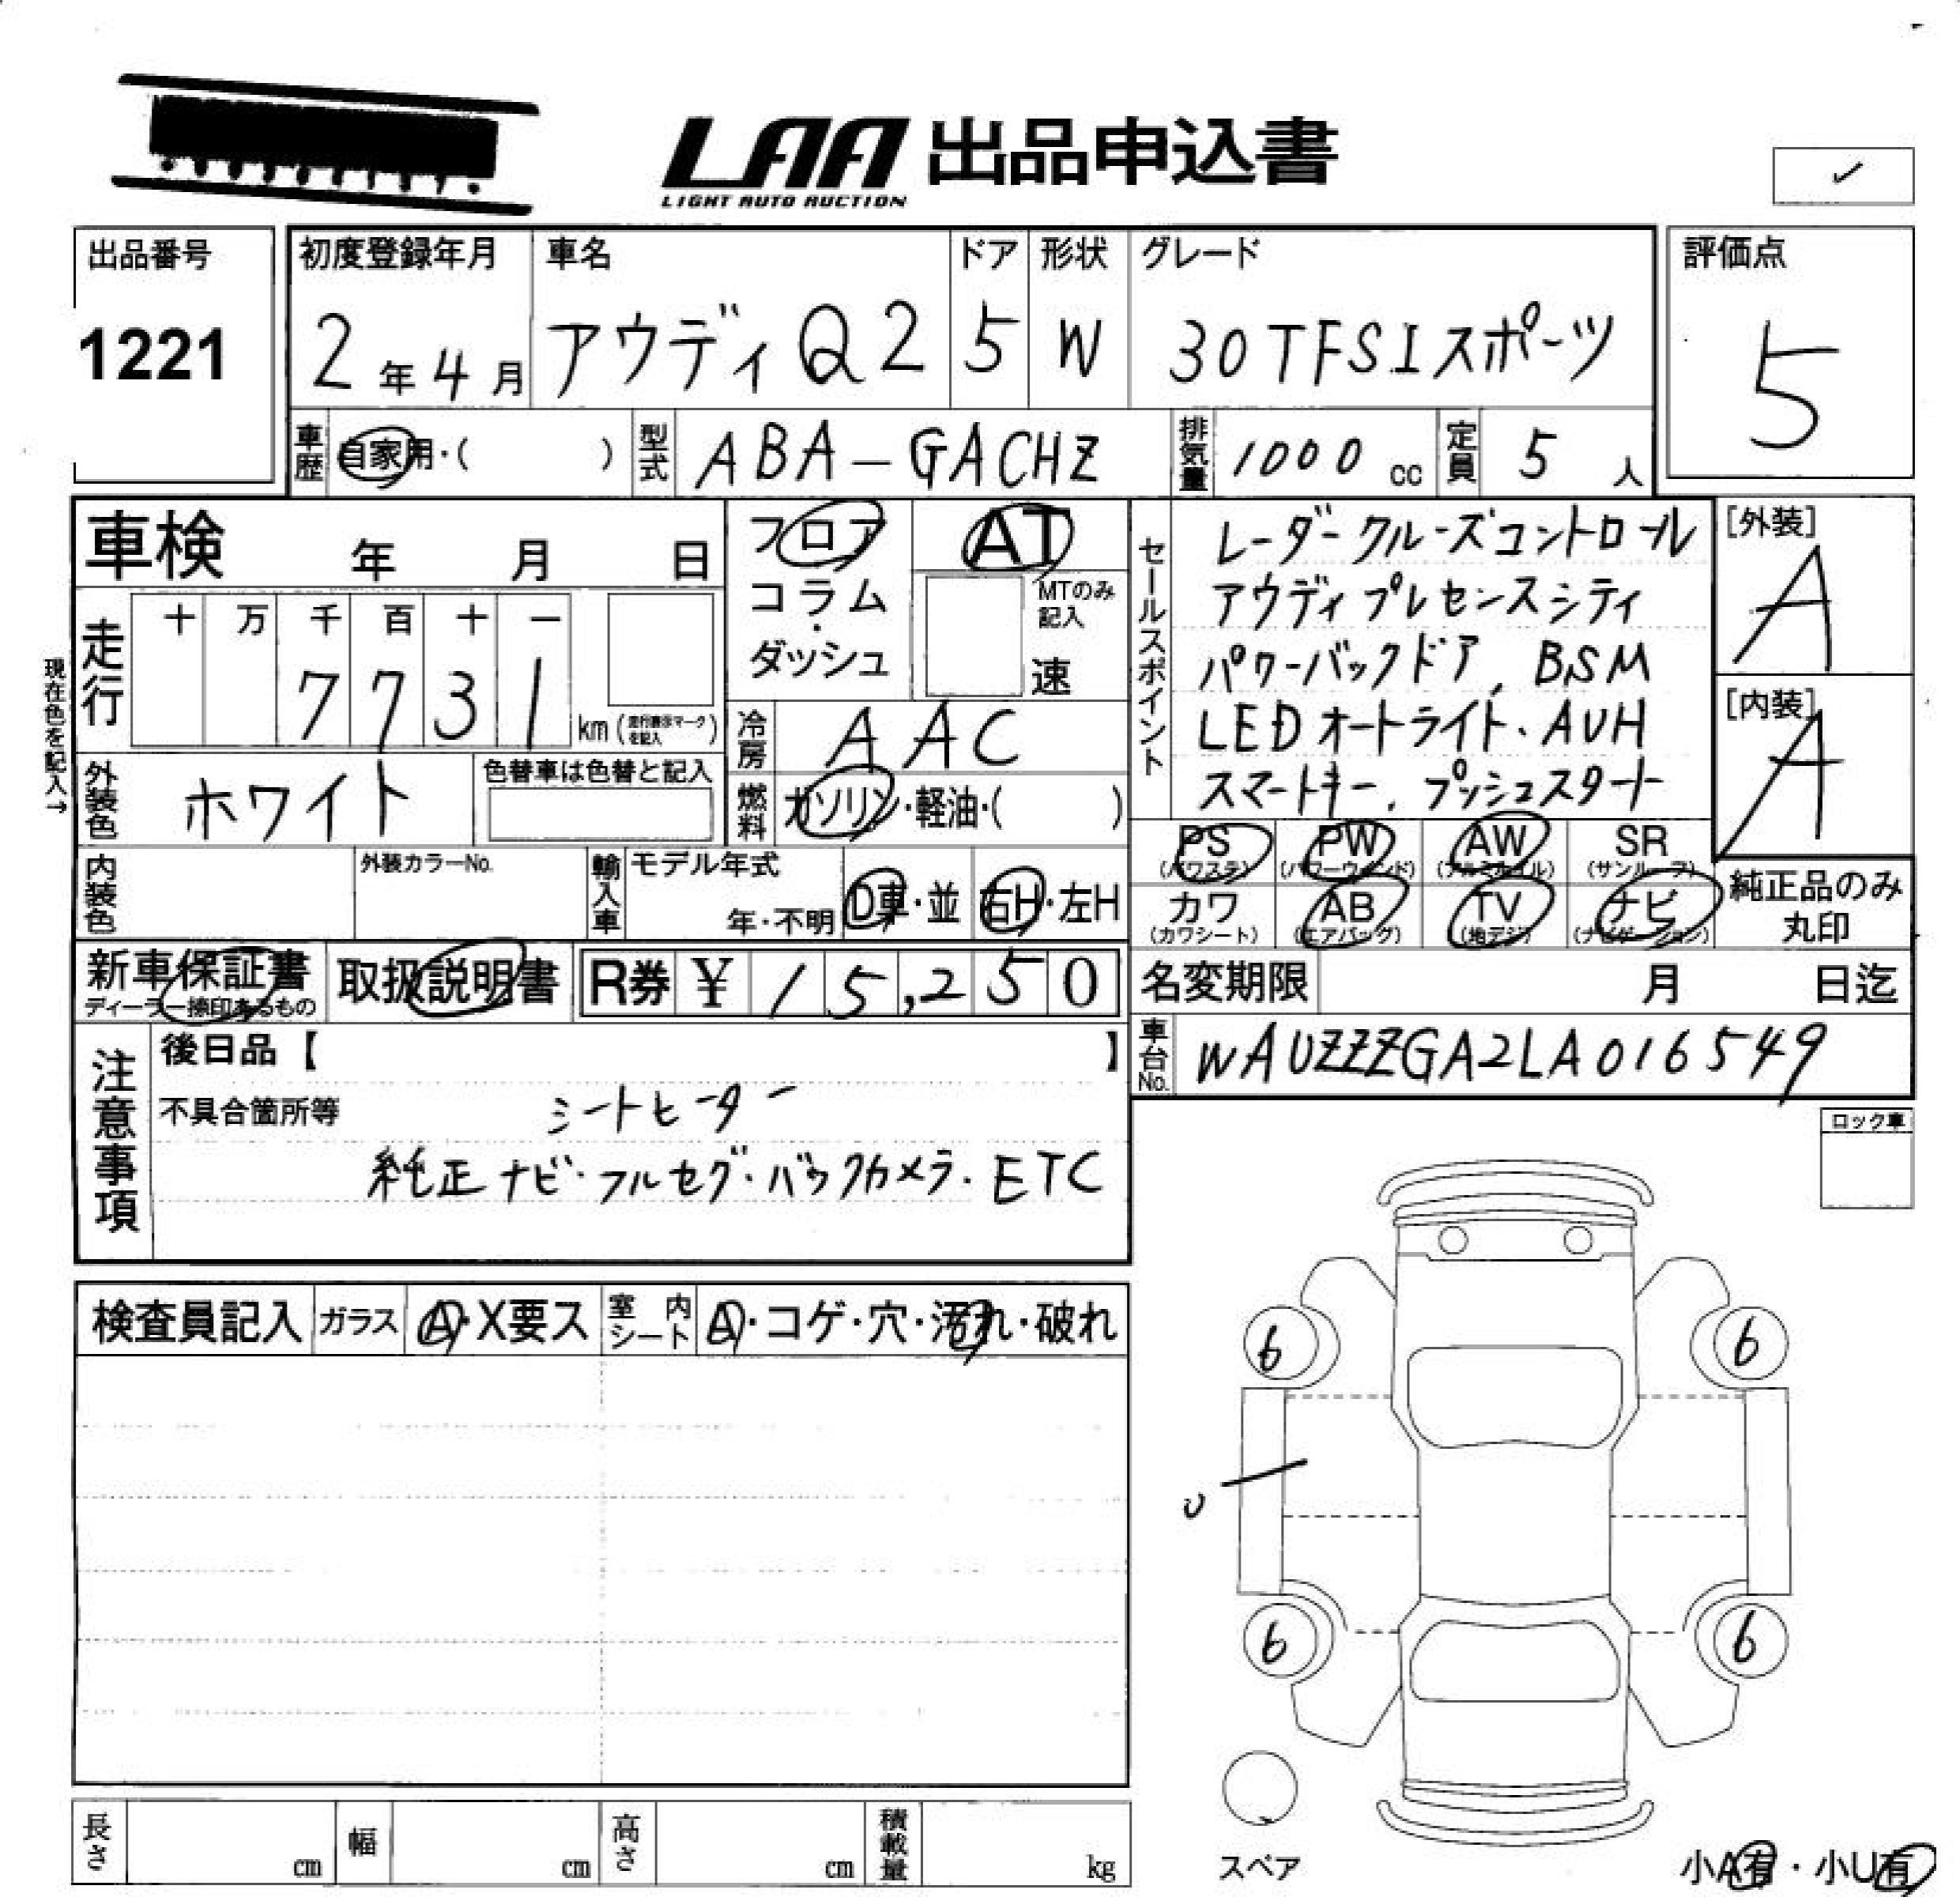 LAA 出品申込書
LIGHT AUTO AUCTION
出品番号
1221
初度登録年月
2年4月
車名
アウディQ2
ドア
5
形状
W
グレード
30TFSIスポーツ
評価点
5
車歴
自家用・( )
型式
ABA-GACHZ
排気量
1000 cc
定員
5 人
車検 年 月 日
走行
十 万 千 百 十 一
7 7 3 1
km(走行表示マークを記入)
現在色を記入→
外装色
ホワイト
色替車は色替と記入
内装色
外装カラーNo.
フロア
コラム
・
ダッシュ
AT
MTのみ記入
速
冷房
AAC
燃料
ガソリン・軽油・( )
輸入車
モデル年式
年・不明
D車・並
右H・左H
セールスポイント
レーダークルーズコントロール
アウディプレセンスシティ
パワーバックドア、BSM
LEDオートライト、AUH
スマートキー、プッシュスタート
[外装]
A
[内装]
A
PS
(パワステ)
PW
(パワーウインド)
AW
(アルミホイル)
SR
(サンルーフ)
カワ
(カワシート)
AB
(エアバッグ)
TV
(地デジ)
ナビ
(ナビゲーション)
純正品のみ
丸印
新車保証書
ディーラー捺印あるもの
取扱説明書
R券 ¥ 15,250
名変期限 月 日迄
車台No.
WAUZZZGA2LA016549
注意事項
後日品【 】
不具合箇所等
シートヒーター
純正ナビ・フルセグ・バックカメラ・ETC
ロック車
検査員記入
ガラス
A・X要ス
室内シート
A・コゲ・穴・汚れ・破れ
6
6
U
6
6
スペア
小A有・小U有
長さ cm
幅 cm
高さ cm
積載量 kg